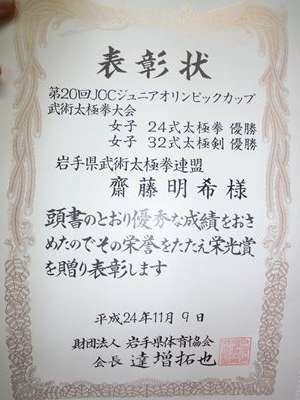 表彰状
第20回JOCジュニアオリンピックカップ
武術太極拳大会
女子 24式太極拳 優勝
女子 32式太極剣 優勝
岩手県武術太極拳連盟
齋藤明希様
頭書のとおり優秀な成績をおさ
めたのでその栄誉をたたえ栄光賞
を贈り表彰します
平成24年11月9日
財団法人 岩手県体育協会
会長 達増拓也